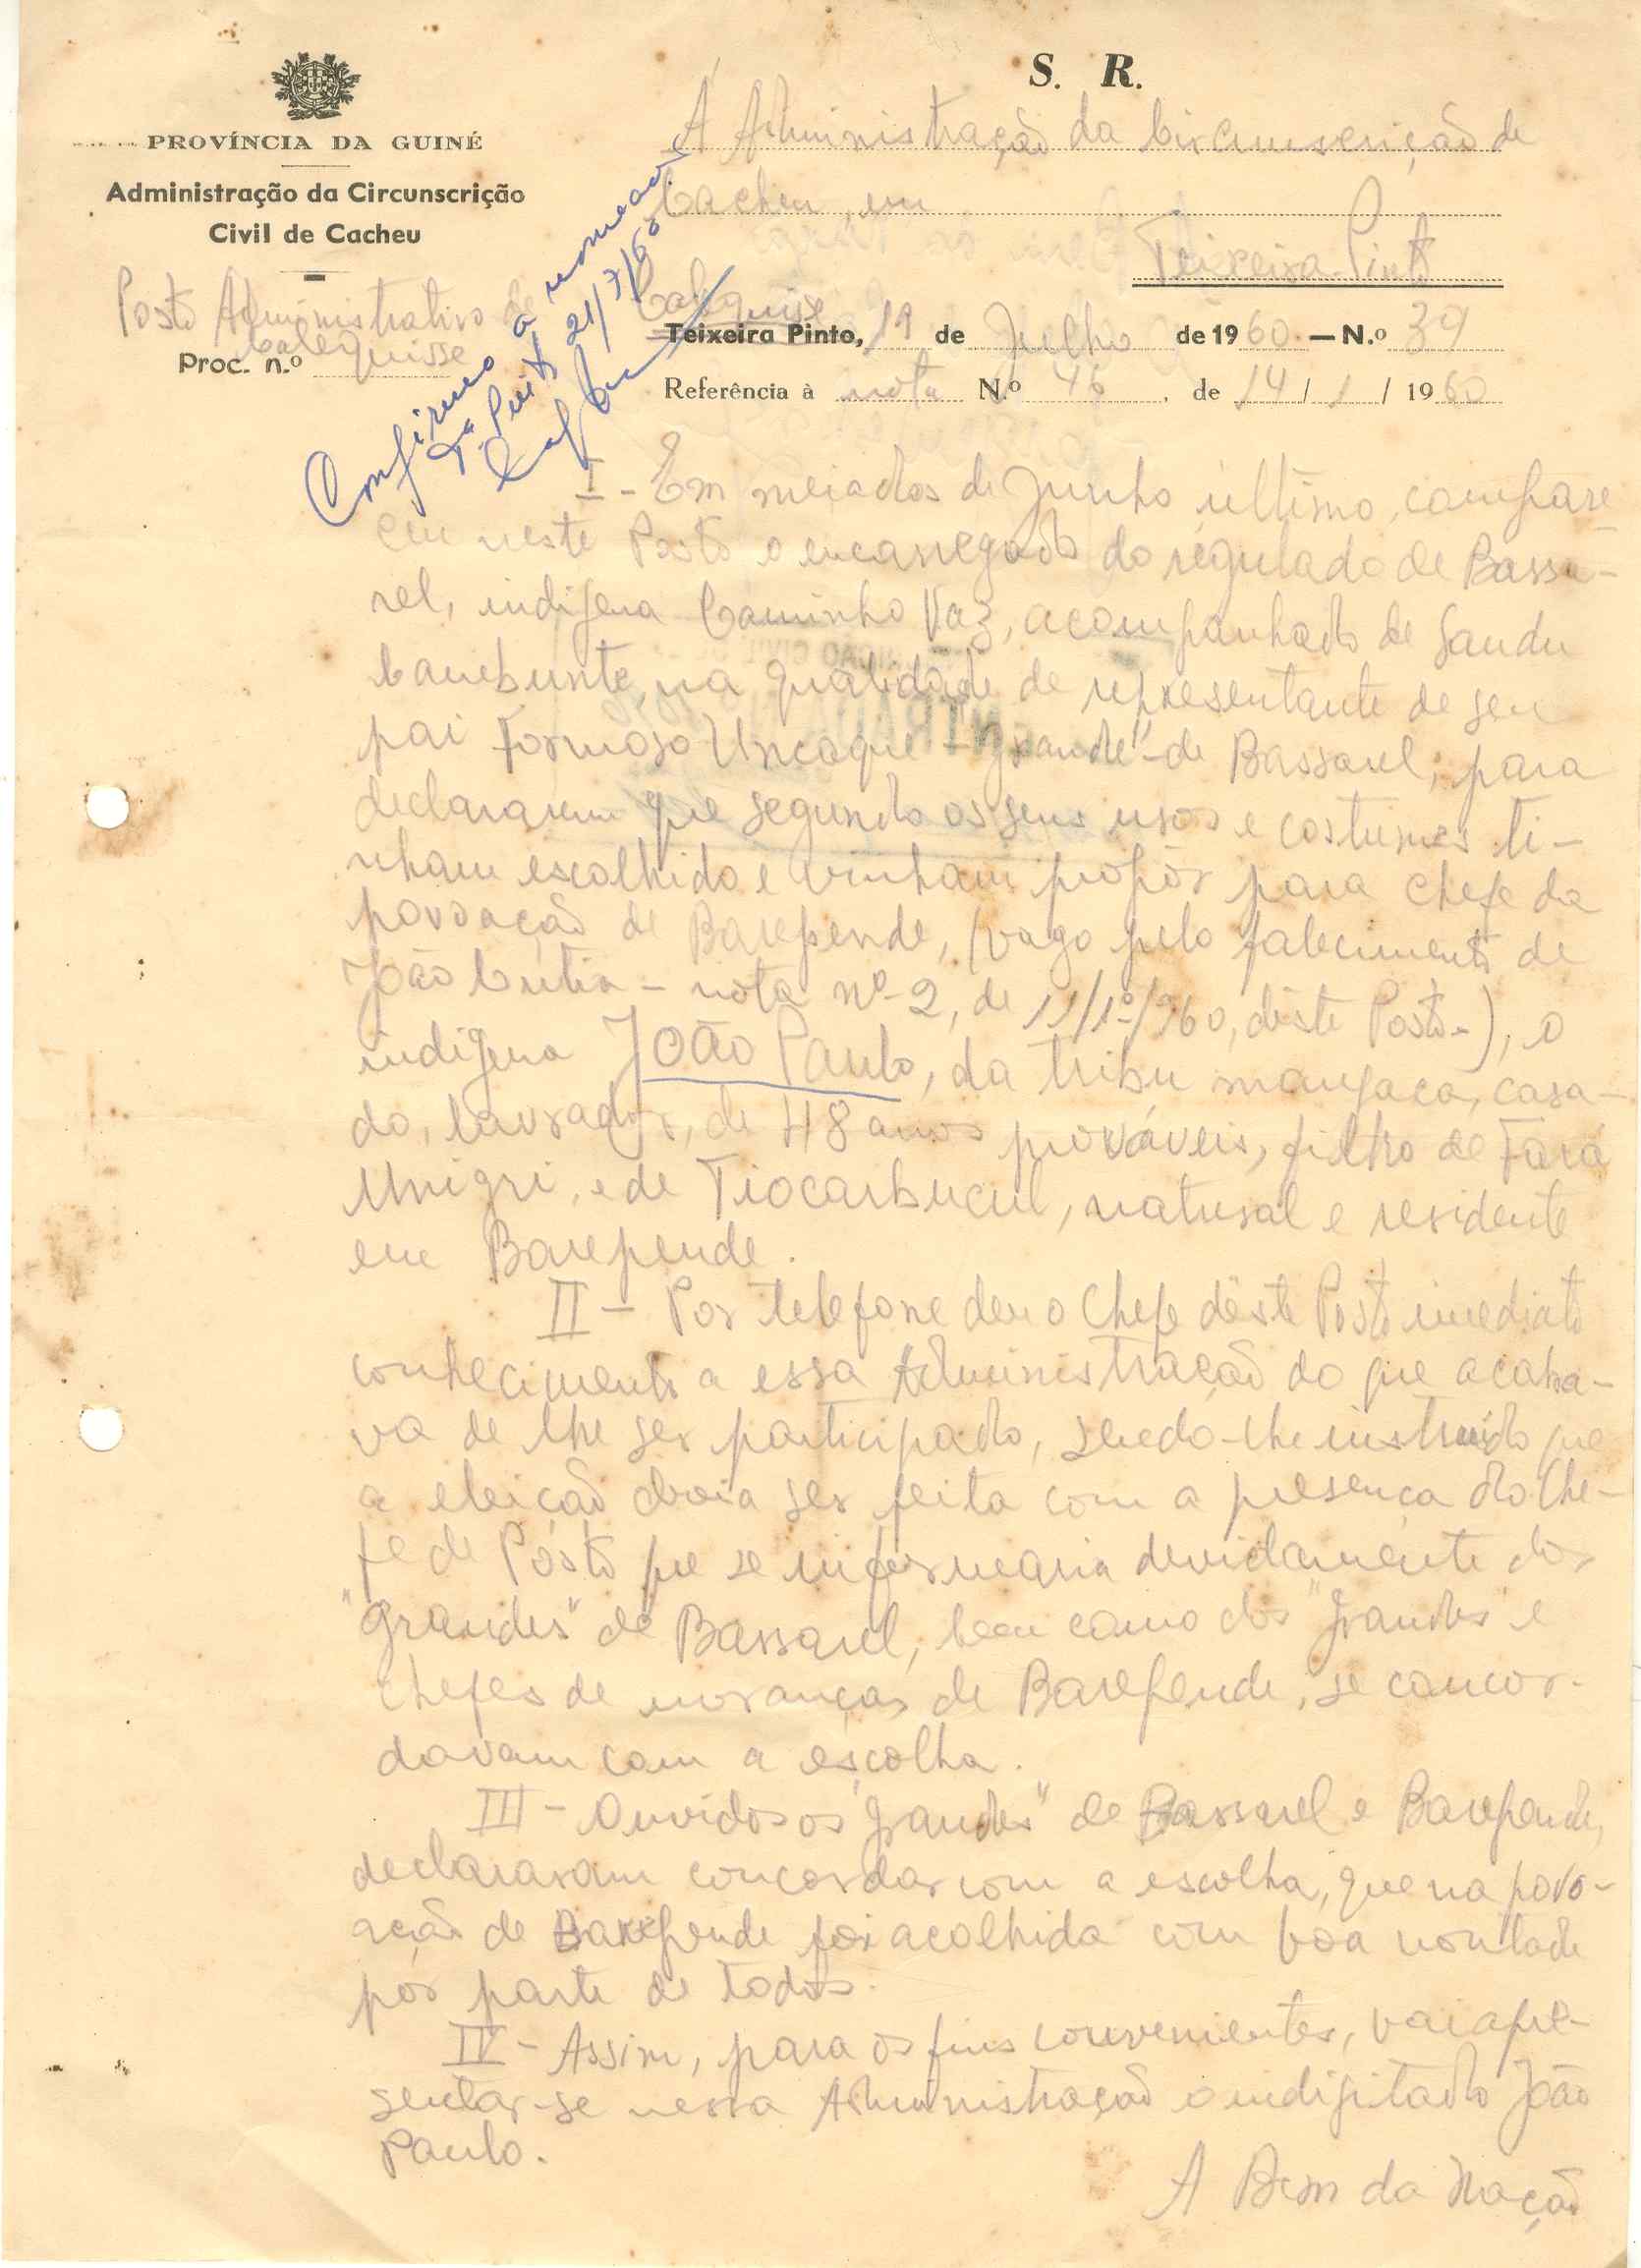 S. R.
PROVÍNCIA DA GUINÉ
Administração da Circunscrição
Civil de Cacheu
Posto Administrativo de
Calequisse
Proc. n.º
À Administração da Circunscrição de
Cacheu, em
Teixeira Pinto
Calequisse
Teixeira Pinto, 19 de Julho de 1960 — N.º 39
Referência à nota N.º 46 . de 14 / 1 / 1960
Confirmo a nomeação
Tª Pinto 21/7/60
I - Em meiados de Junho último, compare
ceu neste Posto o encarregado do regulado de Bassa-
rel, indígena Caminho Vaz, acompanhado de Gandu
Canebunte, na qualidade de representante de seu
pai Formoso Uncaque - "grande" de Bassarel, para
declararem que segundo os seus usos e costumes ti-
nham escolhido e vinham propôr para chefe da
povoação de Barepende, (vago pelo falecimento de
João - nota nº 2, de 11/1º/960, dêste Posto -), o
indígena João Paulo, da tribu manjaca, casa-
do, lavrador, de 48 anos prováveis, filho de Fara
Unigri, e de Tiocarbucul, natural e residente
em Barepende.
II - Por telefone deu o Chefe dêste Posto imediato
conhecimento a essa Administração do que acaba-
va de lhe ser participado, sendo-lhe instruído que
a eleição devia ser feita com a presença do Che-
fe de Pôsto que se informaria devidamente dos
"grandes" de Bassarel, bem como dos "grandes" e
chefes de moranças de Barepende, se concor-
davam com a escolha.
III - Ouvidos os "grandes" de Bassarel e Barepende,
declararam concordar com a escolha, que na povo-
ação de Barepende foi acolhida com boa vontade
por parte de todos.
IV - Assim, para os fins convenientes, vai apre-
sentar-se nessa Administração o indigitado João
Paulo.
A Bem da Nação